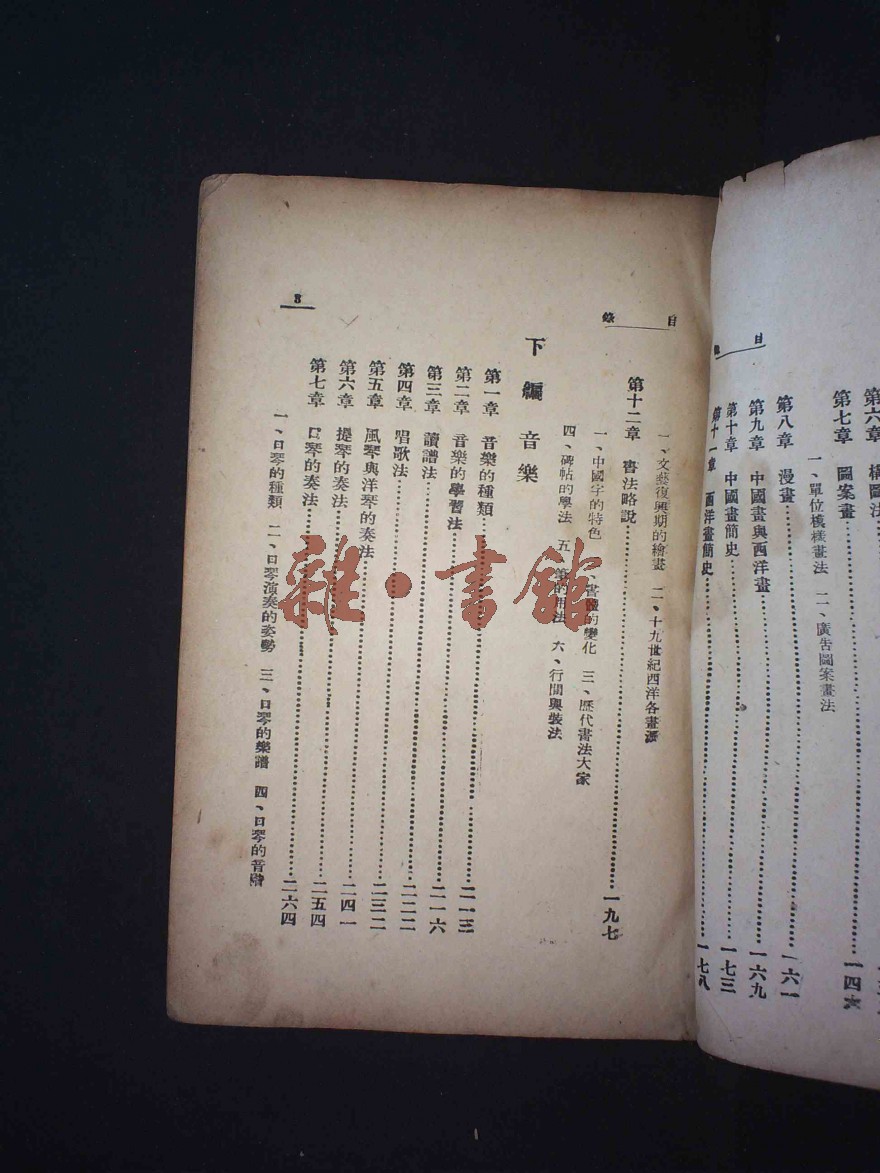 目
第六章 構圖法
第七章 圖案畫……一四六
一、單位模樣畫法 二、廣告圖案畫法
第八章 漫畫……一六一
第九章 中國畫與西洋畫……一六九
第十章 中國畫簡史……一七三
第十一章 西洋畫簡史……一七八
目錄
一、文藝復興期的繪畫 二、十九世紀西洋各畫派
第十二章 書法略說……一九七
一、中國字的特色 二、書體的變化 三、歷代書法大家
四、碑帖的學法 五、筆的用法 六、行間與裝法
下編 音樂
第一章 音樂的種類……二一三
第二章 音樂的學習法……二一六
第三章 讀譜法……二二二
第四章 唱歌法……二三二
第五章 風琴與洋琴的奏法……二四一
第六章 提琴的奏法……二五四
第七章 口琴的奏法……二六四
一、口琴的種類 二、口琴演奏的姿勢 三、口琴的樂譜 四、口琴的音階
3
雜·書館